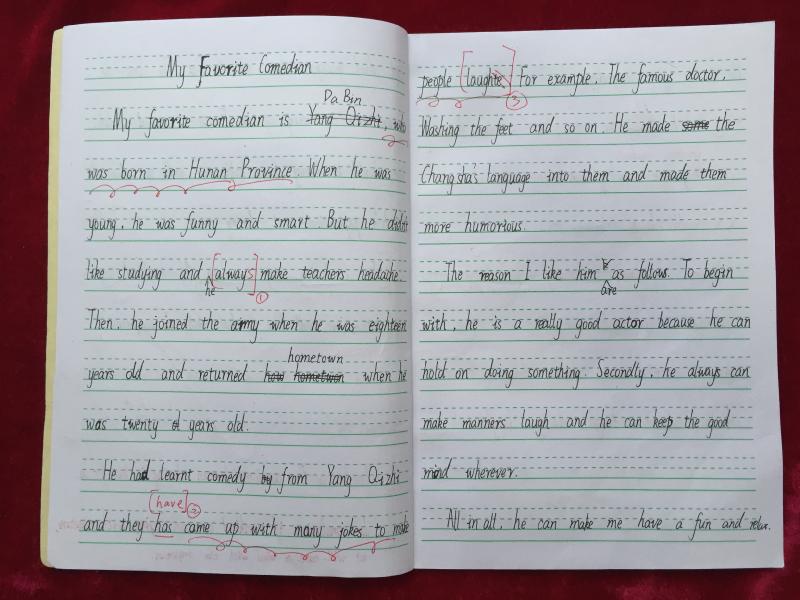 My Favorite Comedian
Da Bin
My favorite comedian is Yang Qizhi, who
was born in Hunan Province. When he was
young, he was funny and smart. But he didn't
like studying and [always] make teachers headache.
he ①
Then, he joined the army when he was eighteen
hometown
years old and returned how hometwon when he
was twenty years old.
He had learnt comedy by from Yang Qizhi
[have] ②
and they has came up with many jokes to make
people [laugh] For example, The famous doctor,
③
Washing the feet and so on. He made some the
Changsha's language into them and made them
more humorious.
The reason I like him as follows. To begin
are
with, he is a really good actor because he can
hold on doing something. Secondly, he always can
make manners laugh and he can keep the good
mind wherever.
All in all, he can make me have a fun and relax.